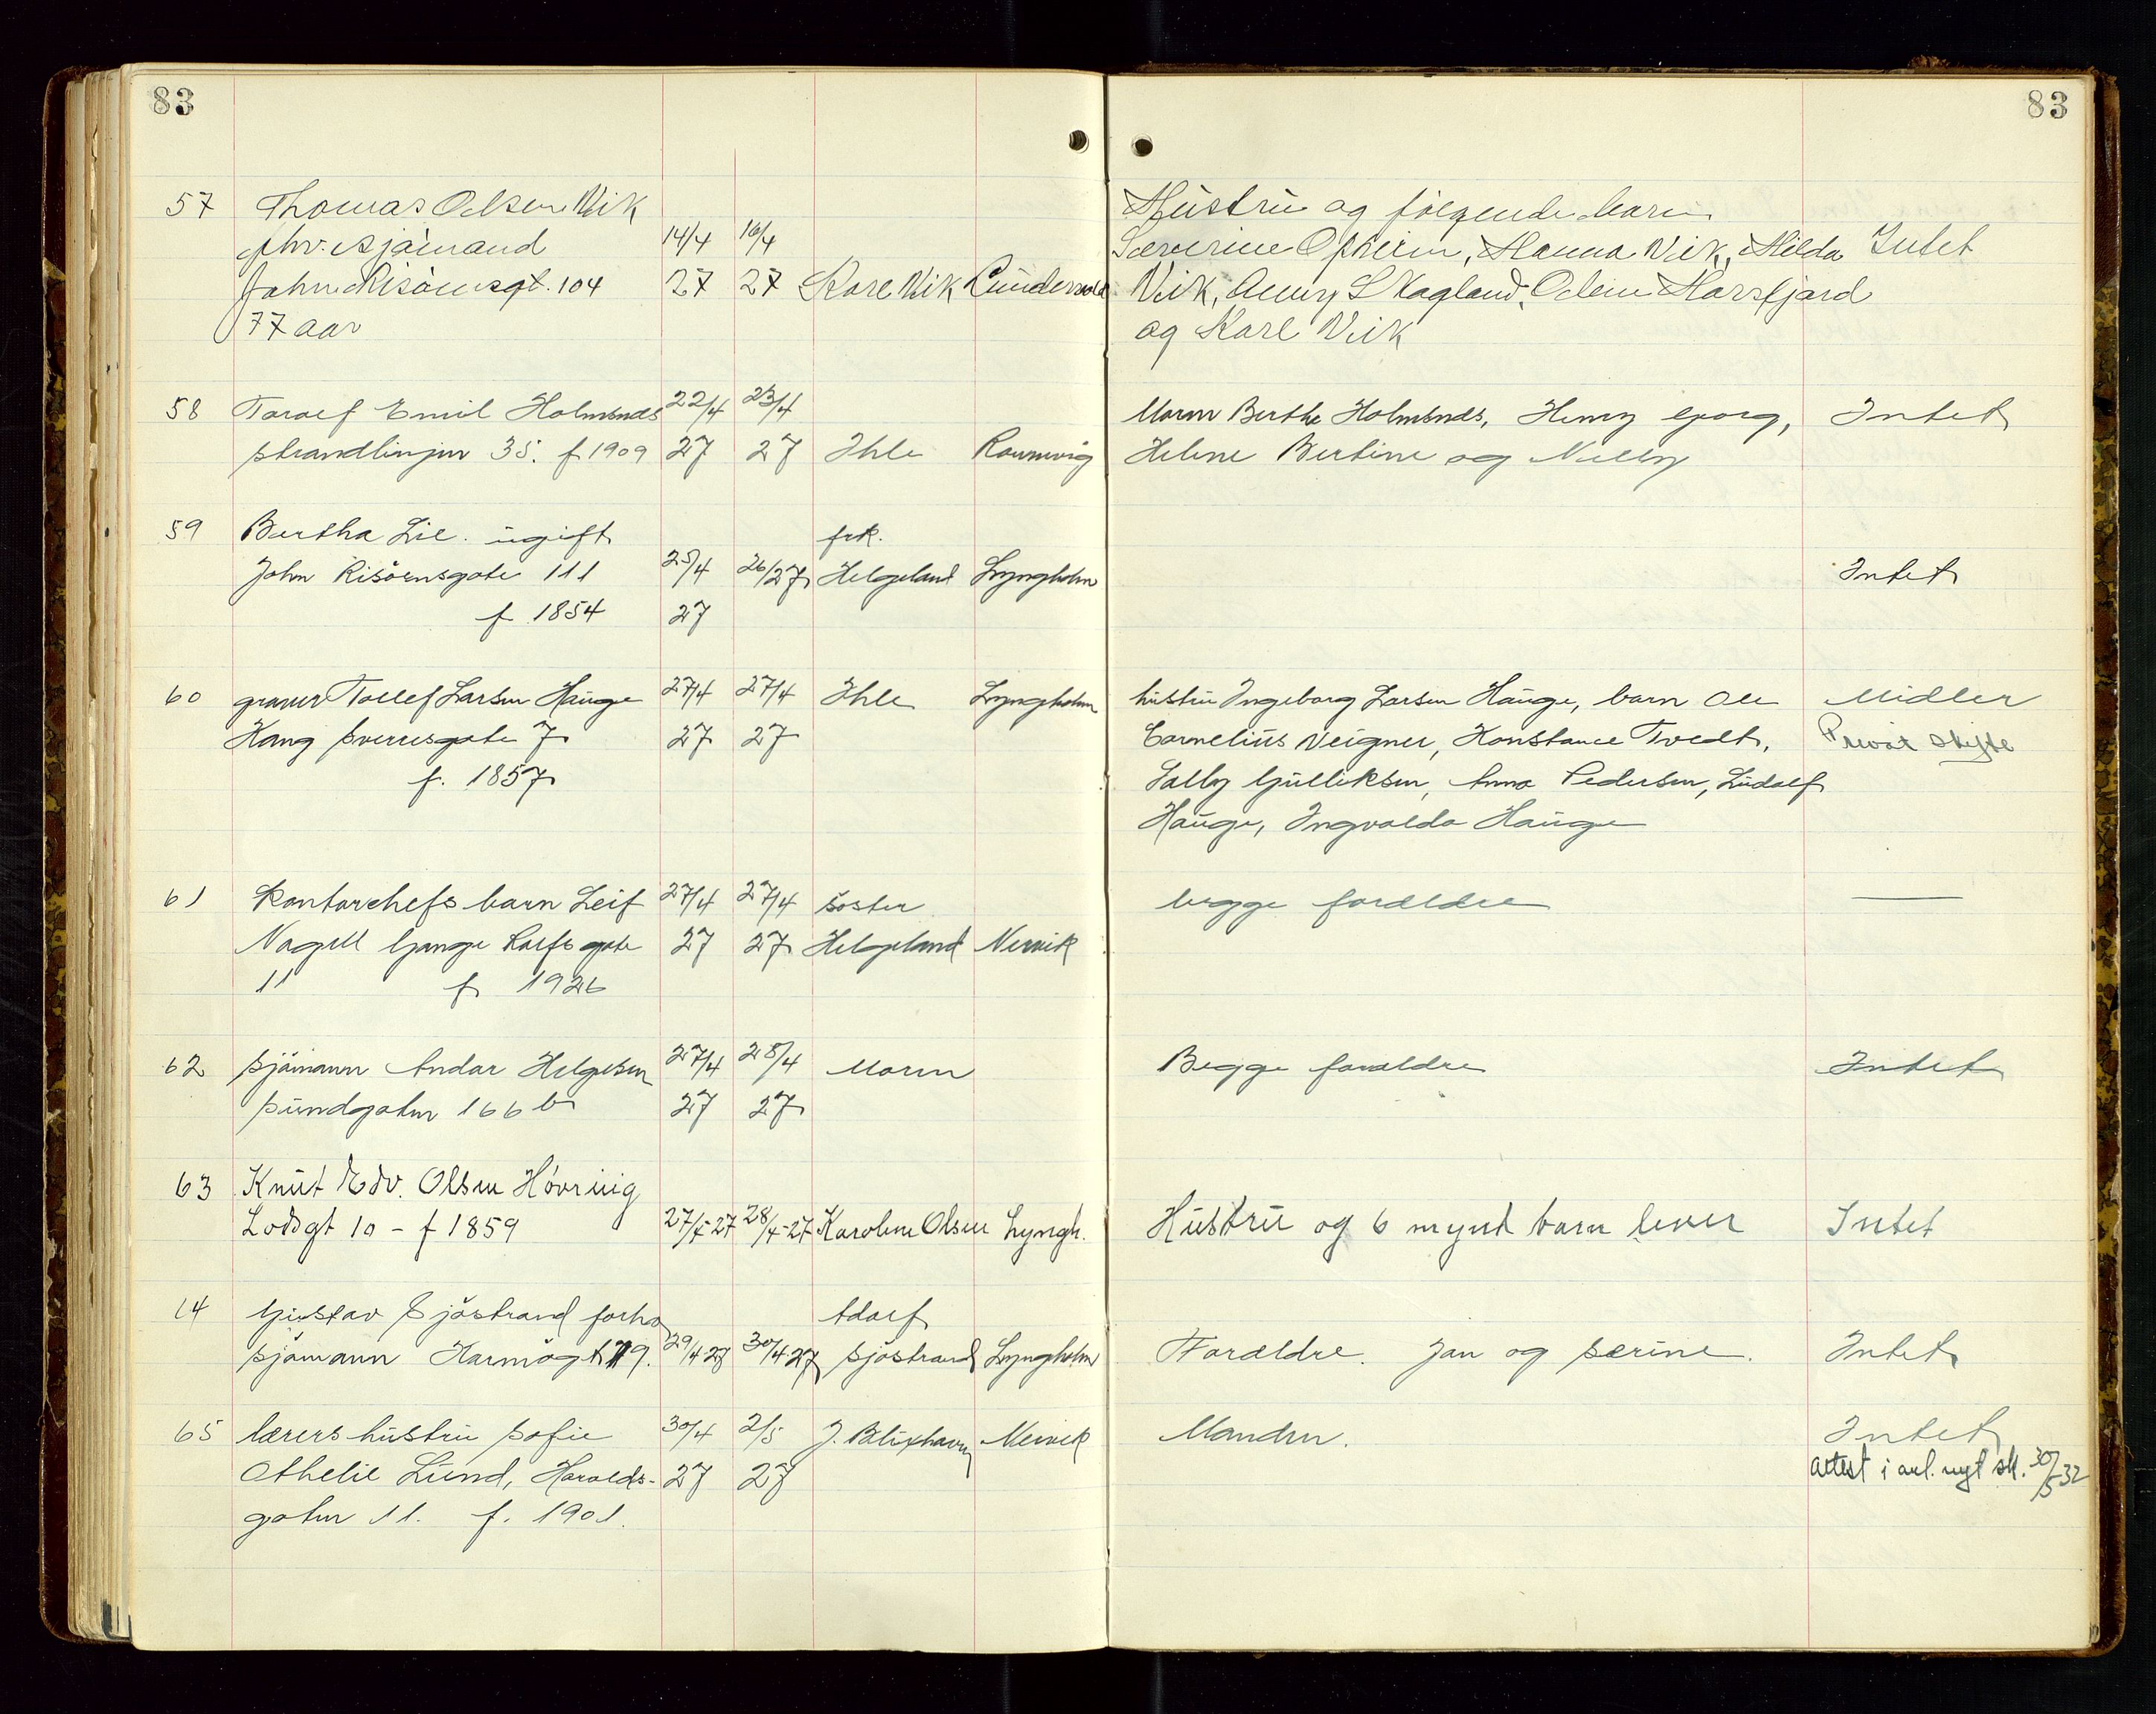 83
83
57 Thomas Olsen Vik
fhv. sjømand 14/4 16/4
John Risøensgt. 104 27 27 Kare Vik
77 aar
Hustru og følgende barn
Severine Opheim, Hanna Vik, Hilda Intet
Vik, Skagland, Harsfjord
og Karl Vik
58 Toralf Emil Holmsnes 22/4 23/4
strandlinjen 35. f 1909 27 27 Ihle Rounevig
Moren Berthe Holmsnes, Henry Georg, Intet
Helene Bertine og Nelly
59 Bertha Lie. ugift frk.
John Risöensgate 111 25/4 26/27 Helgeland Lyngholm Intet
f 1854 27
60 graver Tollef Larsen Hauge 27/4 27/4 Ihle Lyngholm
Kong Sverresgate 7 27 27
f. 1857
hustru Ingeborg Larsen Hauge, barn Ole Midler
Cornelius Veigner, Konstance Tvedt, Privat skifte
Sally Gulliksen, Anna Pedersen, Ludolf
Hauge, Ingvalda Hauge
61 Kontorchefs barn Leif 27/4 27/4 söster begge foreldre —
Nagell Gange Rolfs gate 27 27 Helgeland Nervik
11 f 1926
62 sjömann Andor Helgesen 27/4 28/4 Moren Begge foreldre Intet
sundgaten 166 b 27 27
63 Knut Edv. Olsen Hövring
Lodsgt 10 - f 1859 27/4-27 28/4-27 Karoline Olsen Lyngh. Hustru og 6 mynd barn lever Intet
64 Gustav Sjöstrand forhv
sjömann Karmögt 179. 29/4 27 30/4-27 sjöstrand Lyngholm Foreldre. Jan og serine. Intet
65 lærers hustru sofie 30/4 2/5 J. Blixhavn Nervik Manden. Intet
Athelie Lund, Haralds- 27 27 attest i anl. nyt sk. 30/5 32
gaten 11. f. 1901.